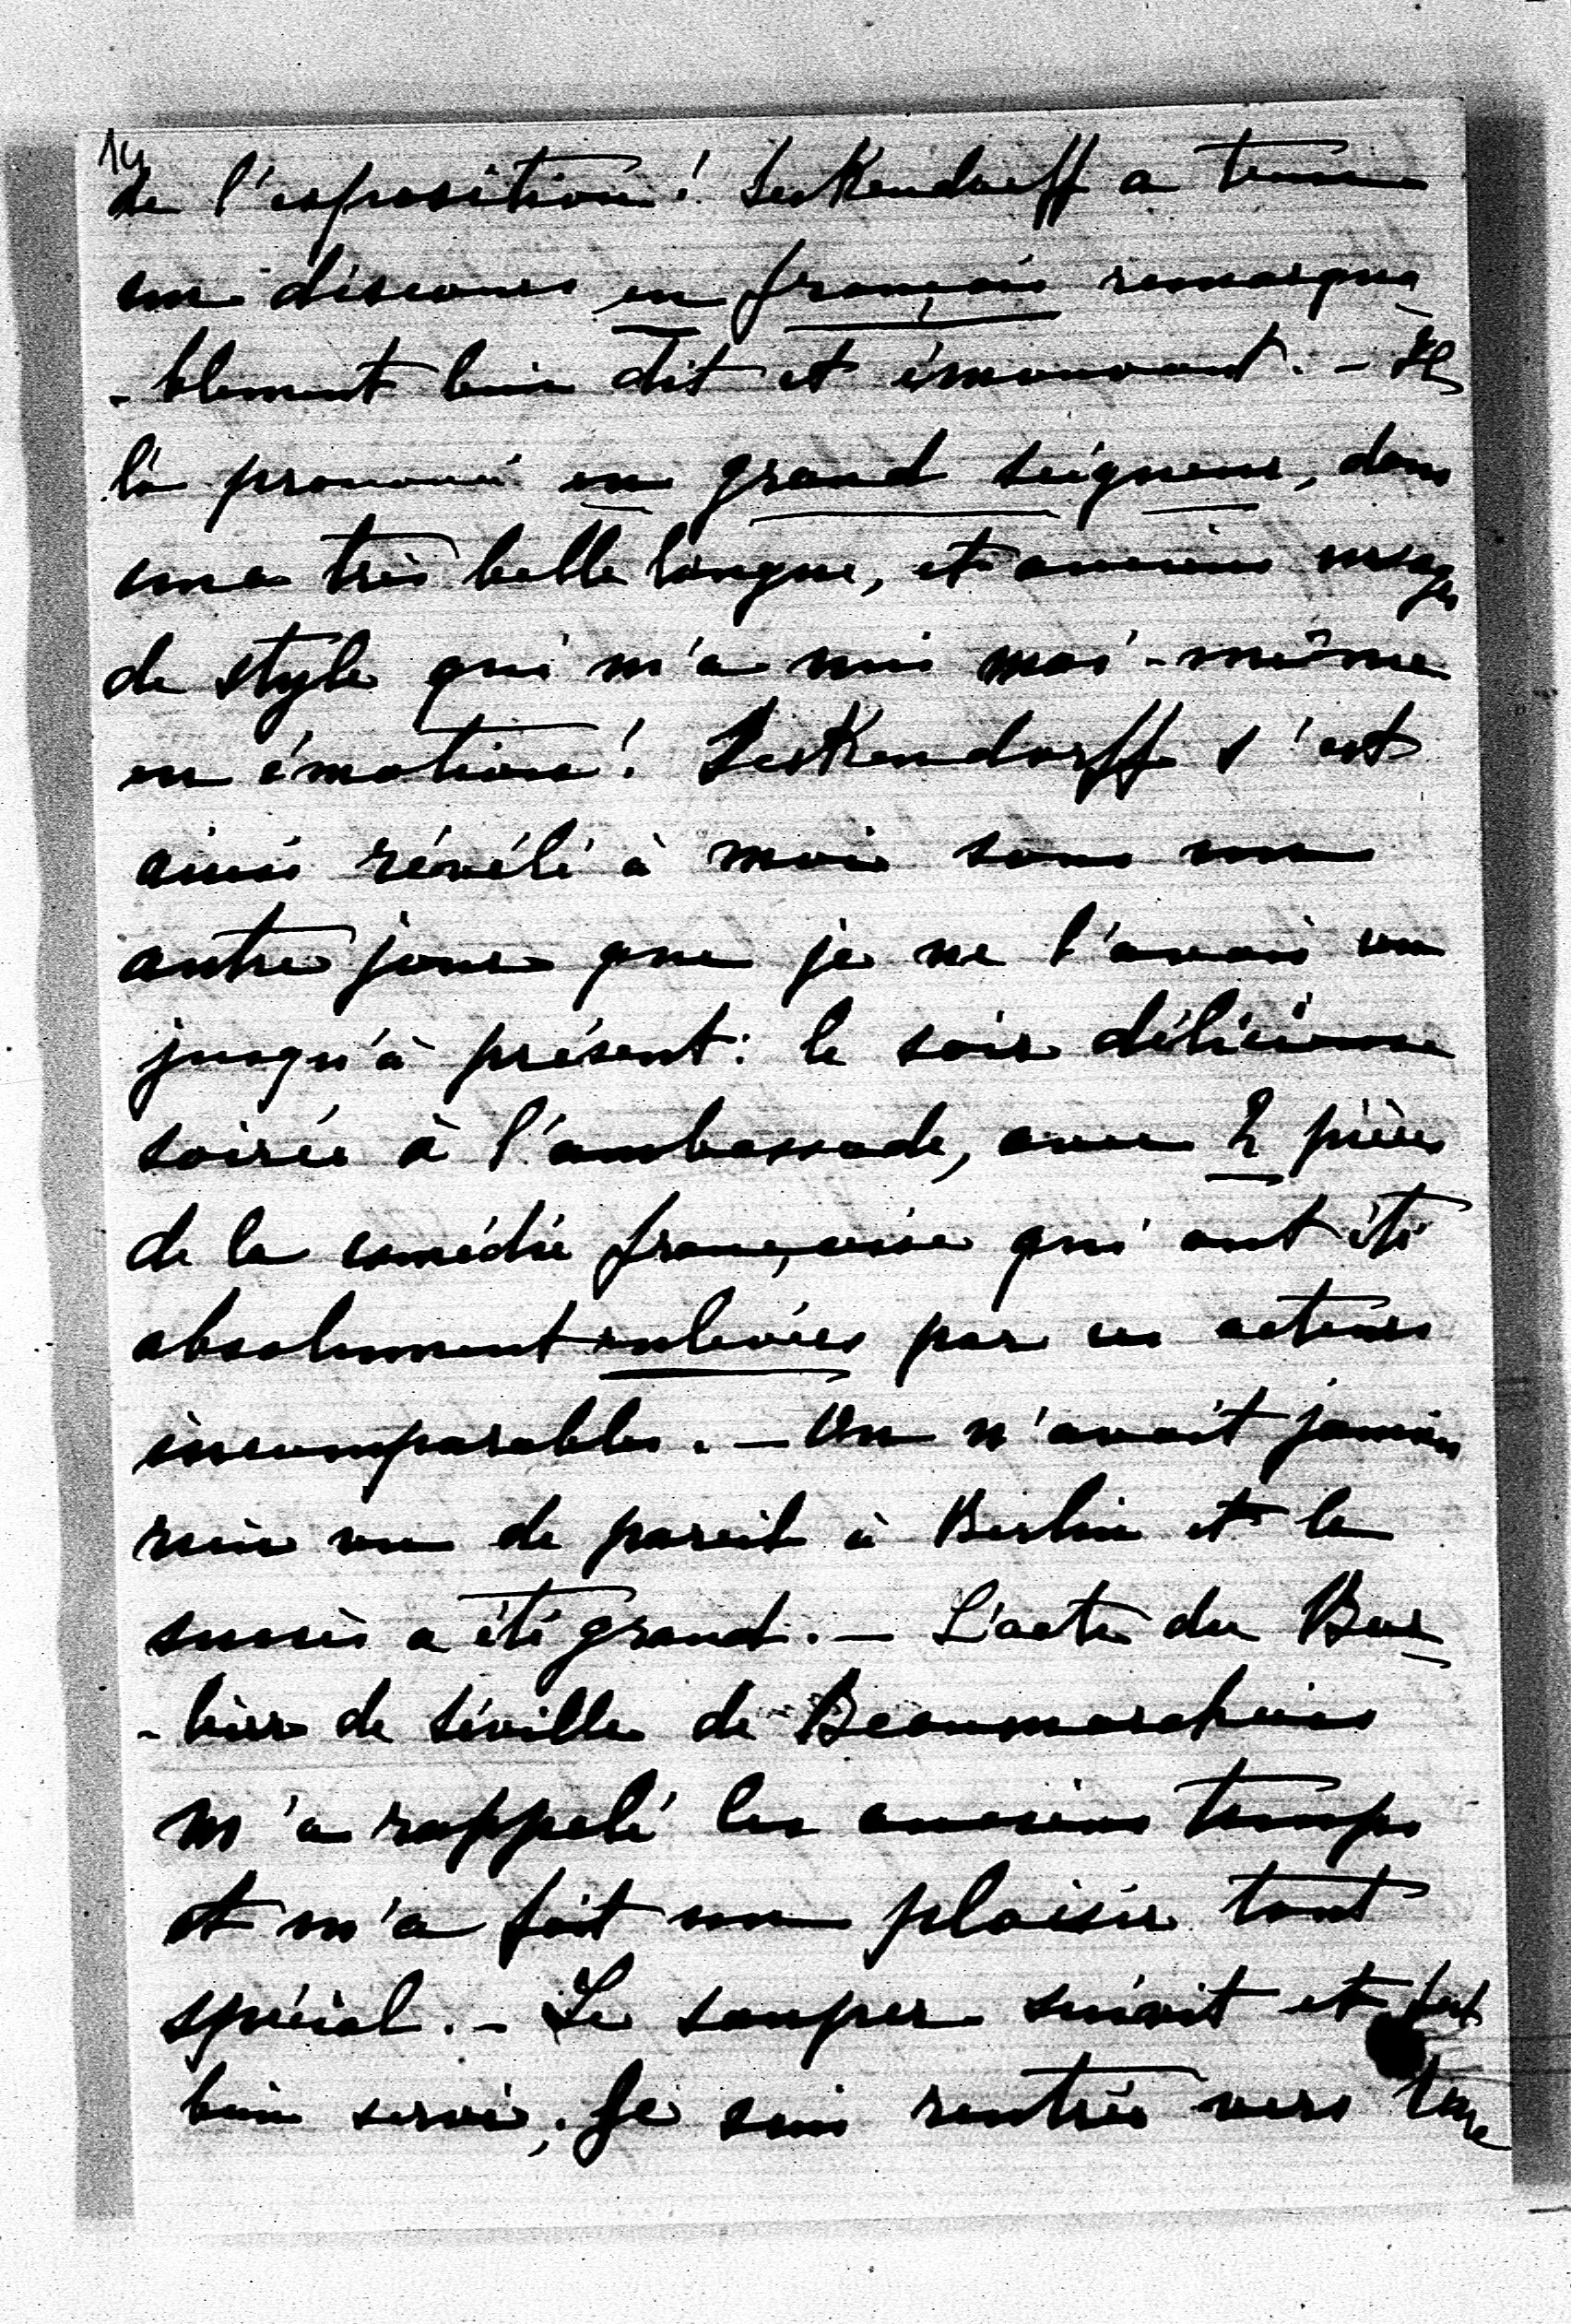 14
de l'exposition! Seckendorff a tenu
un discours en français remarqua
-blement bien dit et émouvant. - Il
l'a prononcé en grand seigneur, dans
une très belle langue, et anciens usages
de style qui m'a mis moi-même
en émotion! Seckendorff s'est
ainsi révélé à moi sous un
autre jour que je ne l'avais vu
jusqu'à présent: le soir délicieuse
soirée à l'ambassade, avec 2 pièces
de la comédie française qui ont été
absolument enlevées par ces acteurs
incomparables. - On n'avait jamais
rien vu de pareil à Berlin et le
succès a été grand. - L'acte du Bar
-bier de Séville de Beaumarchais
m'a rappelé les anciens temps
et m'a fait un plaisir tout
spécial. - Le souper suivit et fut
bien servi; Je suis rentrée vers 1 heure